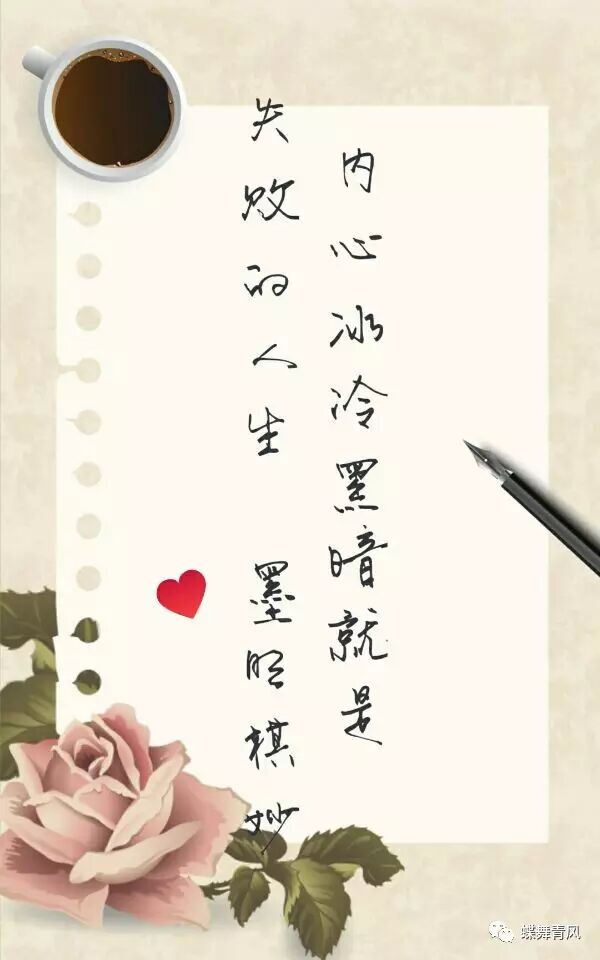 内心冰冷黑暗就是
失败的人生 墨明棋妙
蝶舞青风